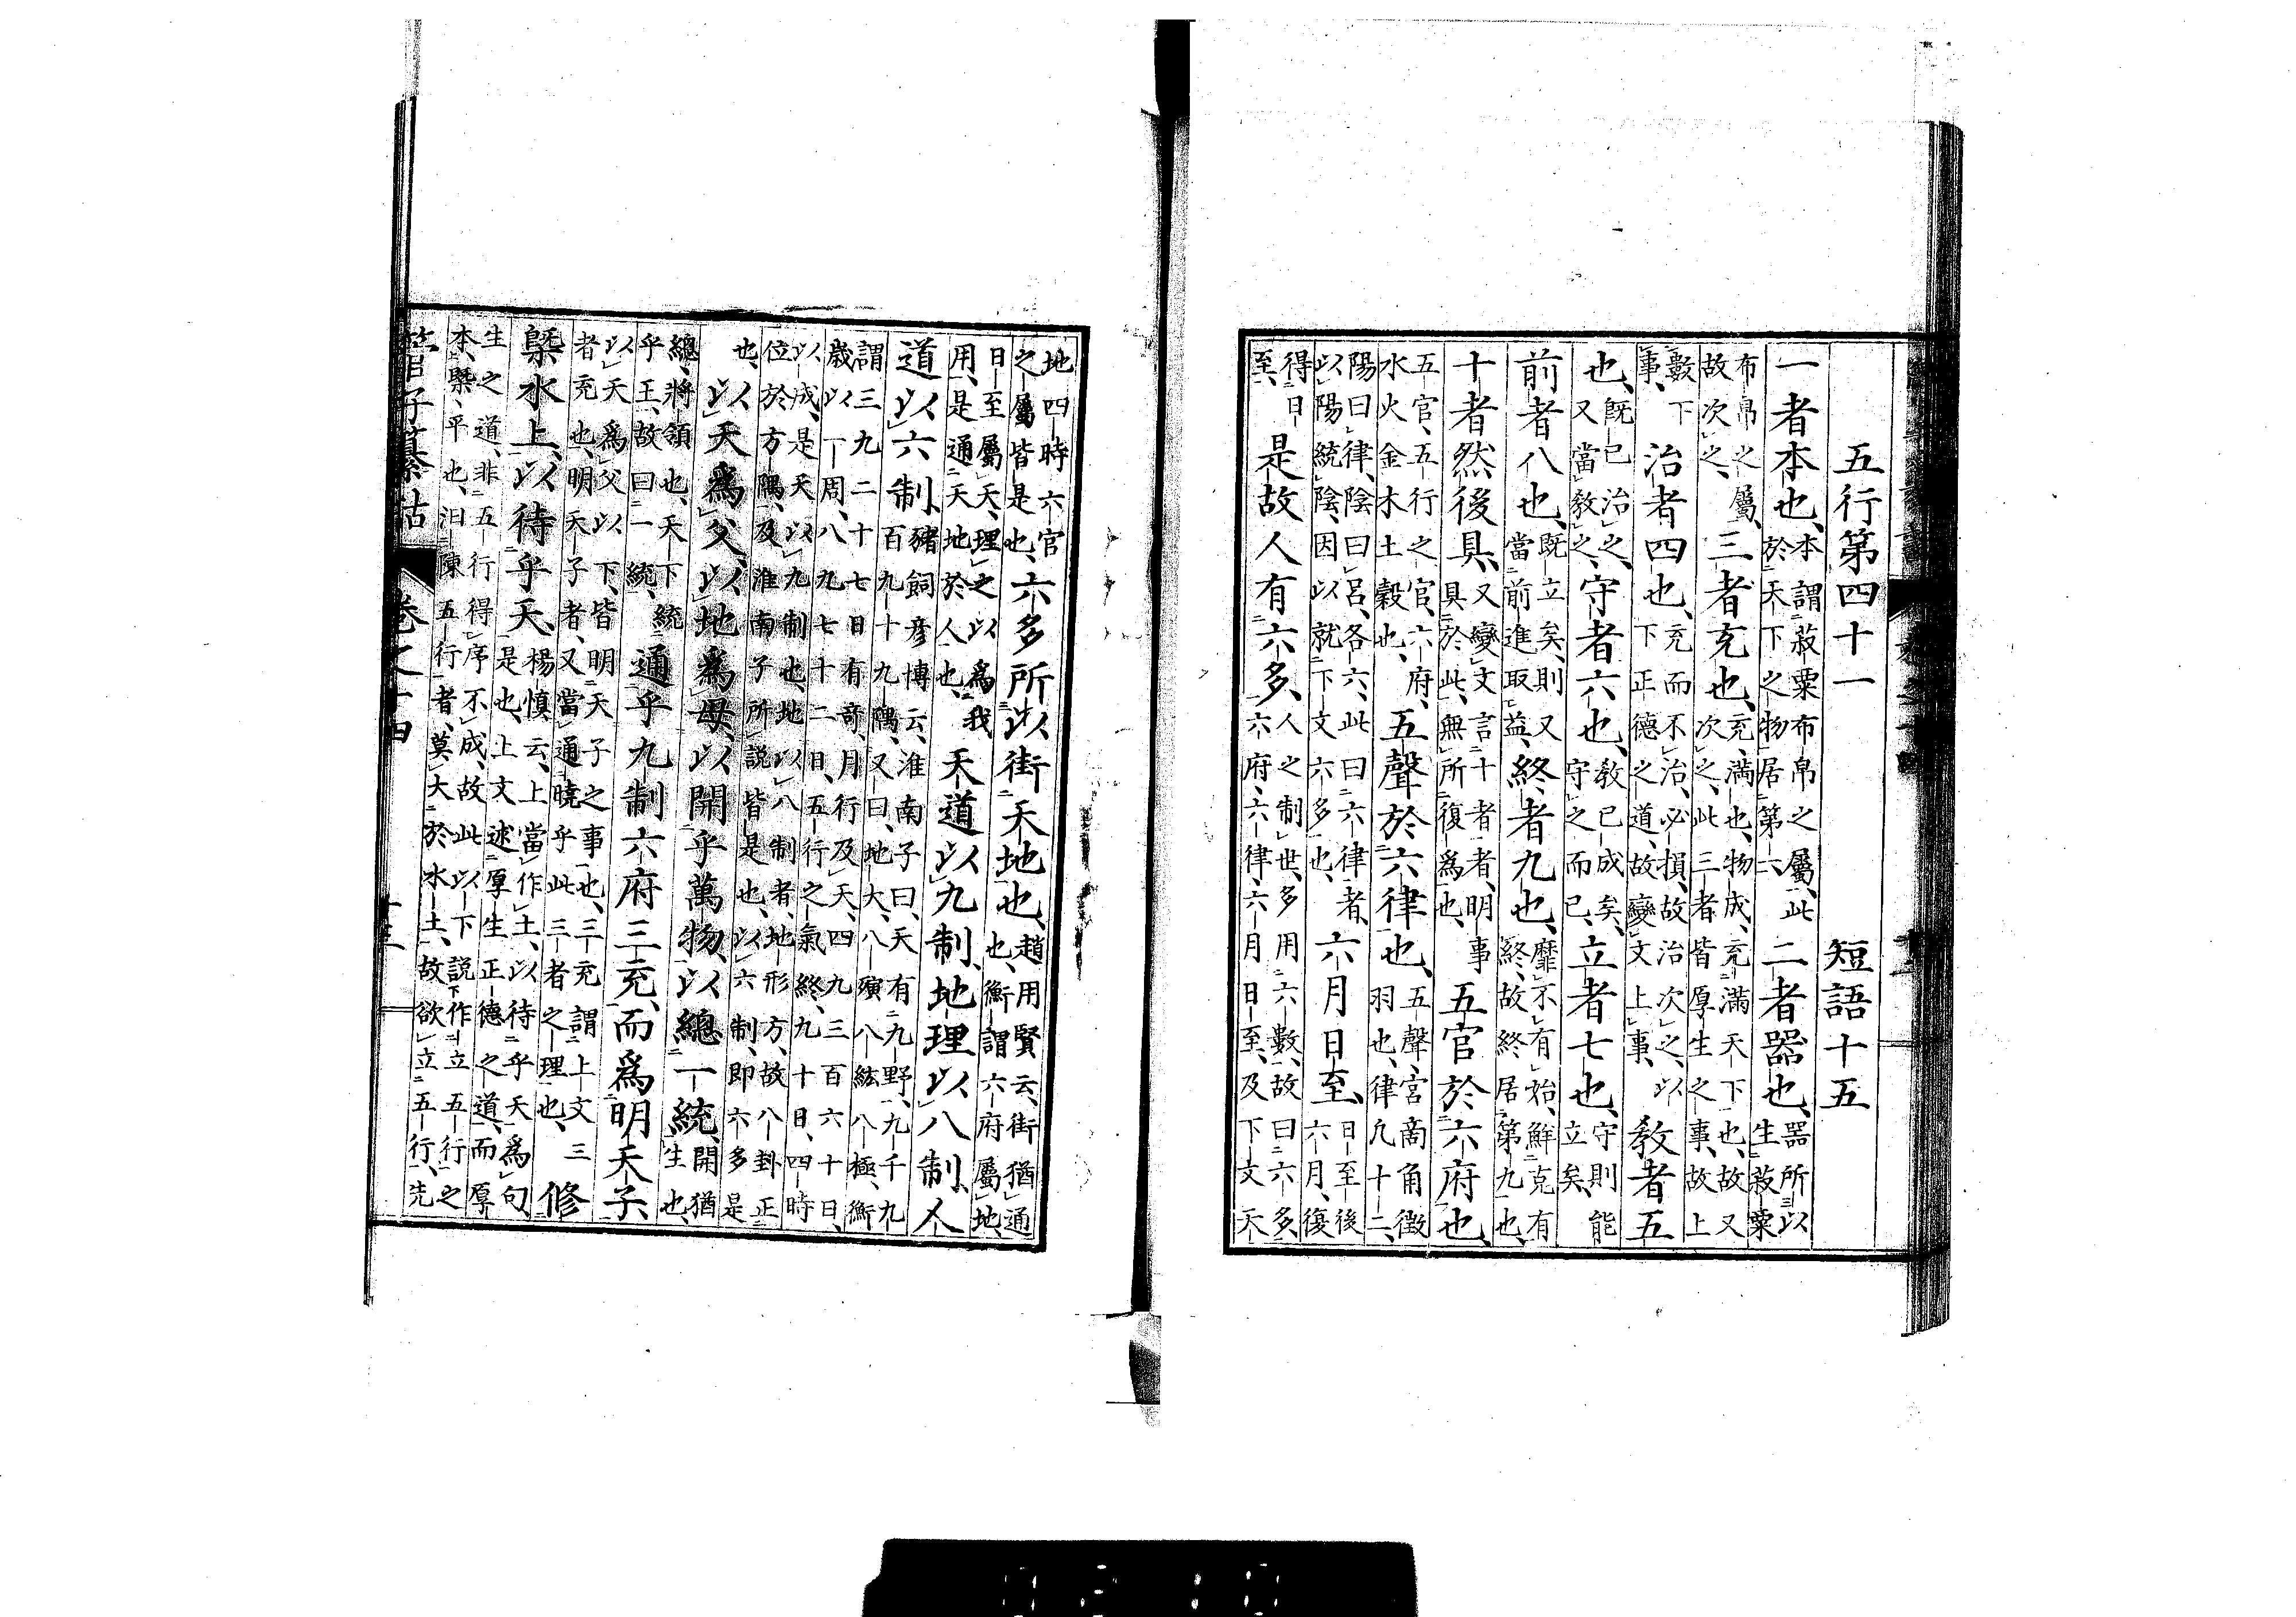 五行第四十一　短語十五
一者本也、本謂菽粟布帛之屬、此於天下之物居第一、二者器也、器所以生菽粟
布帛之屬、故次之、三者充也、充、滿也、物成、充滿天下也、故又次之、此三者皆厚生之事、故上
數下事、治者四也、充而不治、必損、故治次之、以下正德之道、故變文上事、教者五
也、既已治之、又當教之、守者六也、教已成矣、守之而已、立者七也、守則能立矣、
前者八也、既立矣、則又當前進取益、終者九也、靡不有始、鮮克有終、故終居第九也、
十者然後具、又變文言十者者、明事具於此、無所復爲也、五官於六府也、
五官、五行之官、六府、水火金木土穀也、五聲於六律也、五聲、宮商角徵羽也、律凡十二、
陽曰律、陰曰呂、各六、此曰六律者、以陽統陰、因以就下文六多也、六月日至、日至後六月、復
得日至、是故人有六多、人之制世、多用六數、故曰六多、六府、六律、六月日至、及下文天
地四時六官之屬皆是也、六多所以街天地也、趙用賢云、街猶通也、衡謂六府屬地、
日至屬天、理之以爲我用、是通天地於人也、天道以九制、地理以八制、人
道以六制、豬飼彥博云、淮南子曰、天有九野、九千九百九十九隅、又曰、地大、八殥八紘八極、衡
謂三九二十七日有奇、月行及天、四九三百六十日、歲以一周、八九七十二日、五行之氣終、九十日、四時
以成、是天以九制也、地以八制者、地形方、故八卦正位於方隅、及淮南子所說皆是也、以六制、即六多是
也、以天爲父、以地爲母、以開乎萬物、以總一統、開猶生也、
總、將領也、天下統乎王、故曰一統、通乎九制六府三充、而爲明天子、
以天爲父以下、皆明天子之事也、三充謂上文三者充也、明天子者、又當通曉乎此三者之理也、修
槩水上、以待乎天、楊慎云、上當作土、以待乎天爲句、是也、上文述厚生正德之道、而厚
生之道、非五行得序不成、故此以下說作立五行之本、槩、平也、汩陳五行者、莫大於水土、故欲立五行、先
管子纂詁　卷之十四　十三